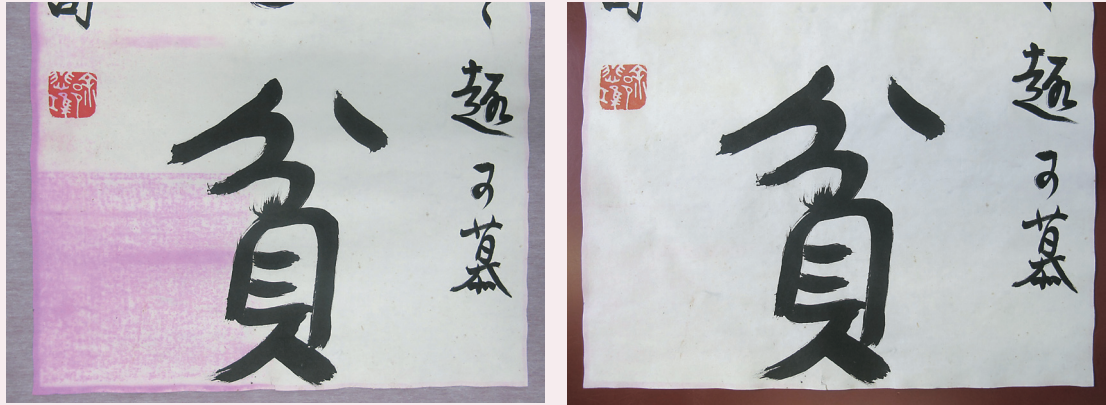 趣可慕
貧
趣可慕
貧